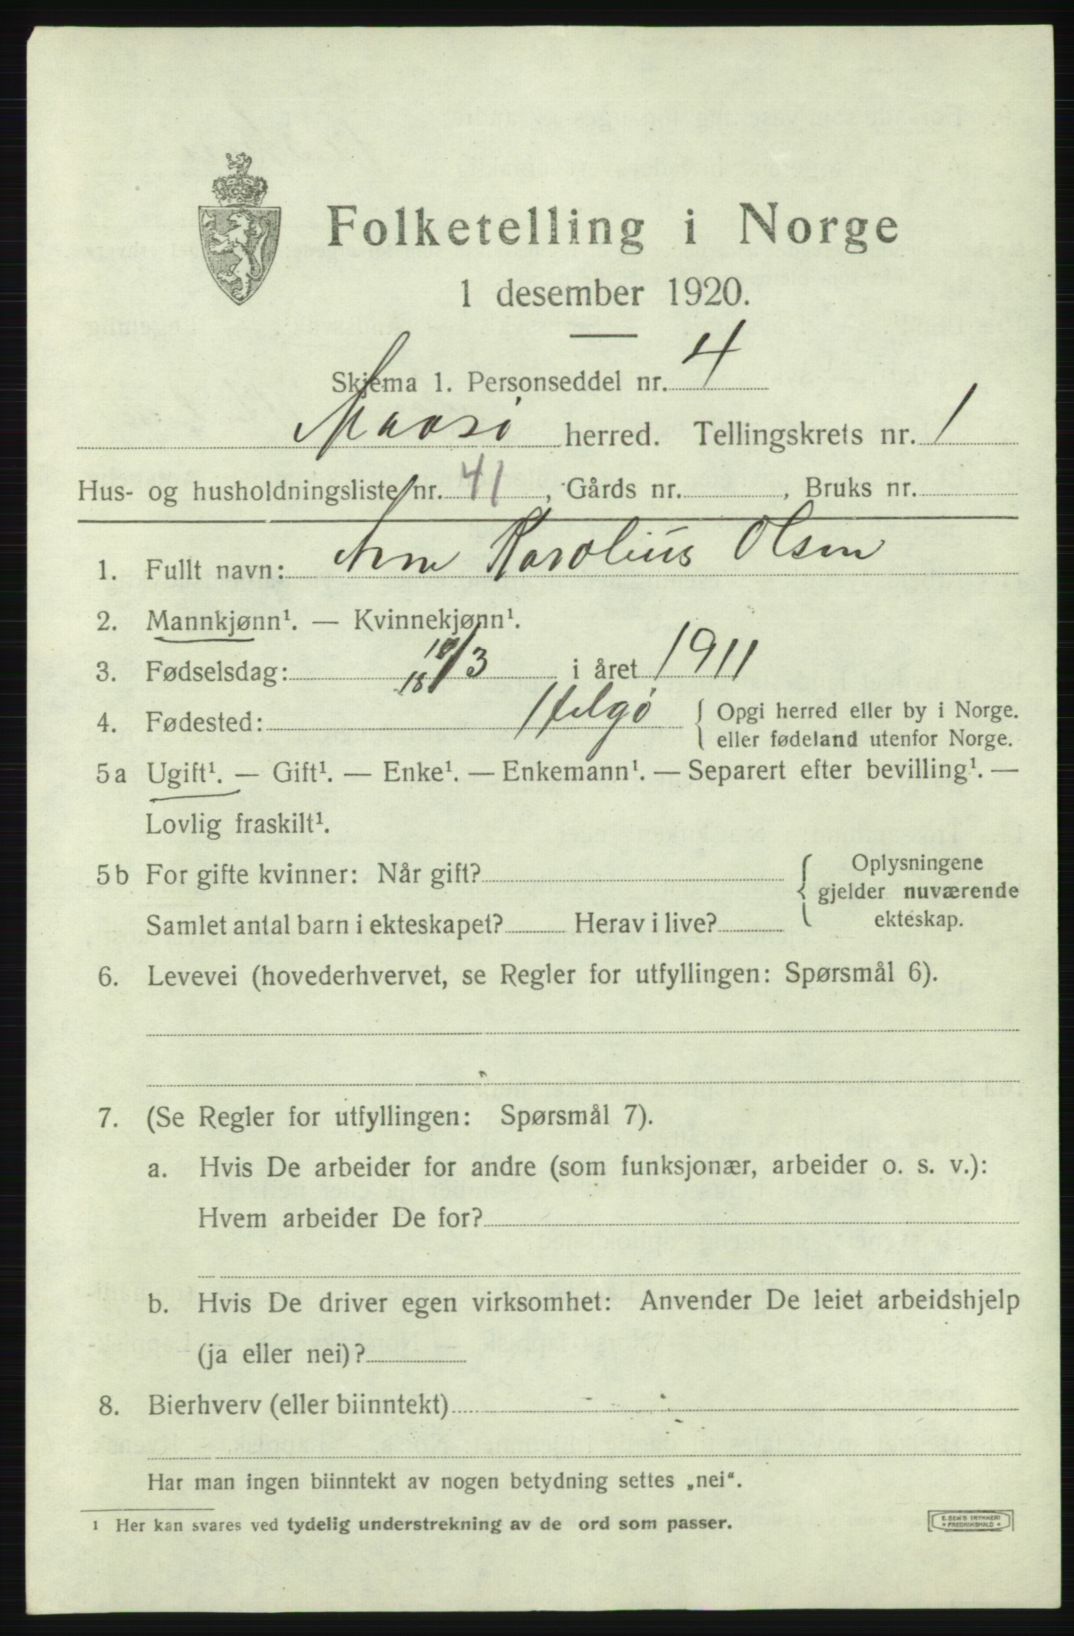 Folketelling i Norge
1 desember 1920.
Skjema 1. Personseddel nr. 4
Maasø herred. Tellingskrets nr. 1
Hus- og husholdningsliste nr. 41, Gårds nr. , Bruks nr.
1. Fullt navn: Arne Karolius Olsen
2. Mannkjønn¹. — Kvinnekjønn¹.
3. Fødselsdag: 18/3 i året 1911
18
4. Fødested: Helgø { Opgi herred eller by i Norge.
eller fødeland utenfor Norge.
5 a Ugift¹. — Gift¹. — Enke¹. — Enkemann¹. — Separert efter bevilling¹. —
Lovlig fraskilt¹.
5 b For gifte kvinner: Når gift? { Oplysningene
gjelder nuværende
Samlet antal barn i ekteskapet? Herav i live? ekteskap.
6. Levevei (hovederhvervet, se Regler for utfyllingen: Spørsmål 6).
7. (Se Regler for utfyllingen: Spørsmål 7).
a. Hvis De arbeider for andre (som funksjonær, arbeider o. s. v.):
Hvem arbeider De for?
b. Hvis De driver egen virksomhet: Anvender De leiet arbeidshjelp
(ja eller nei)?
8. Bierhverv (eller biinntekt)
Har man ingen biinntekt av nogen betydning settes „nei“.
¹ Her kan svares ved tydelig understrekning av de ord som passer.
E. SEM'S TRYKKERI
FREDRIKSHALD